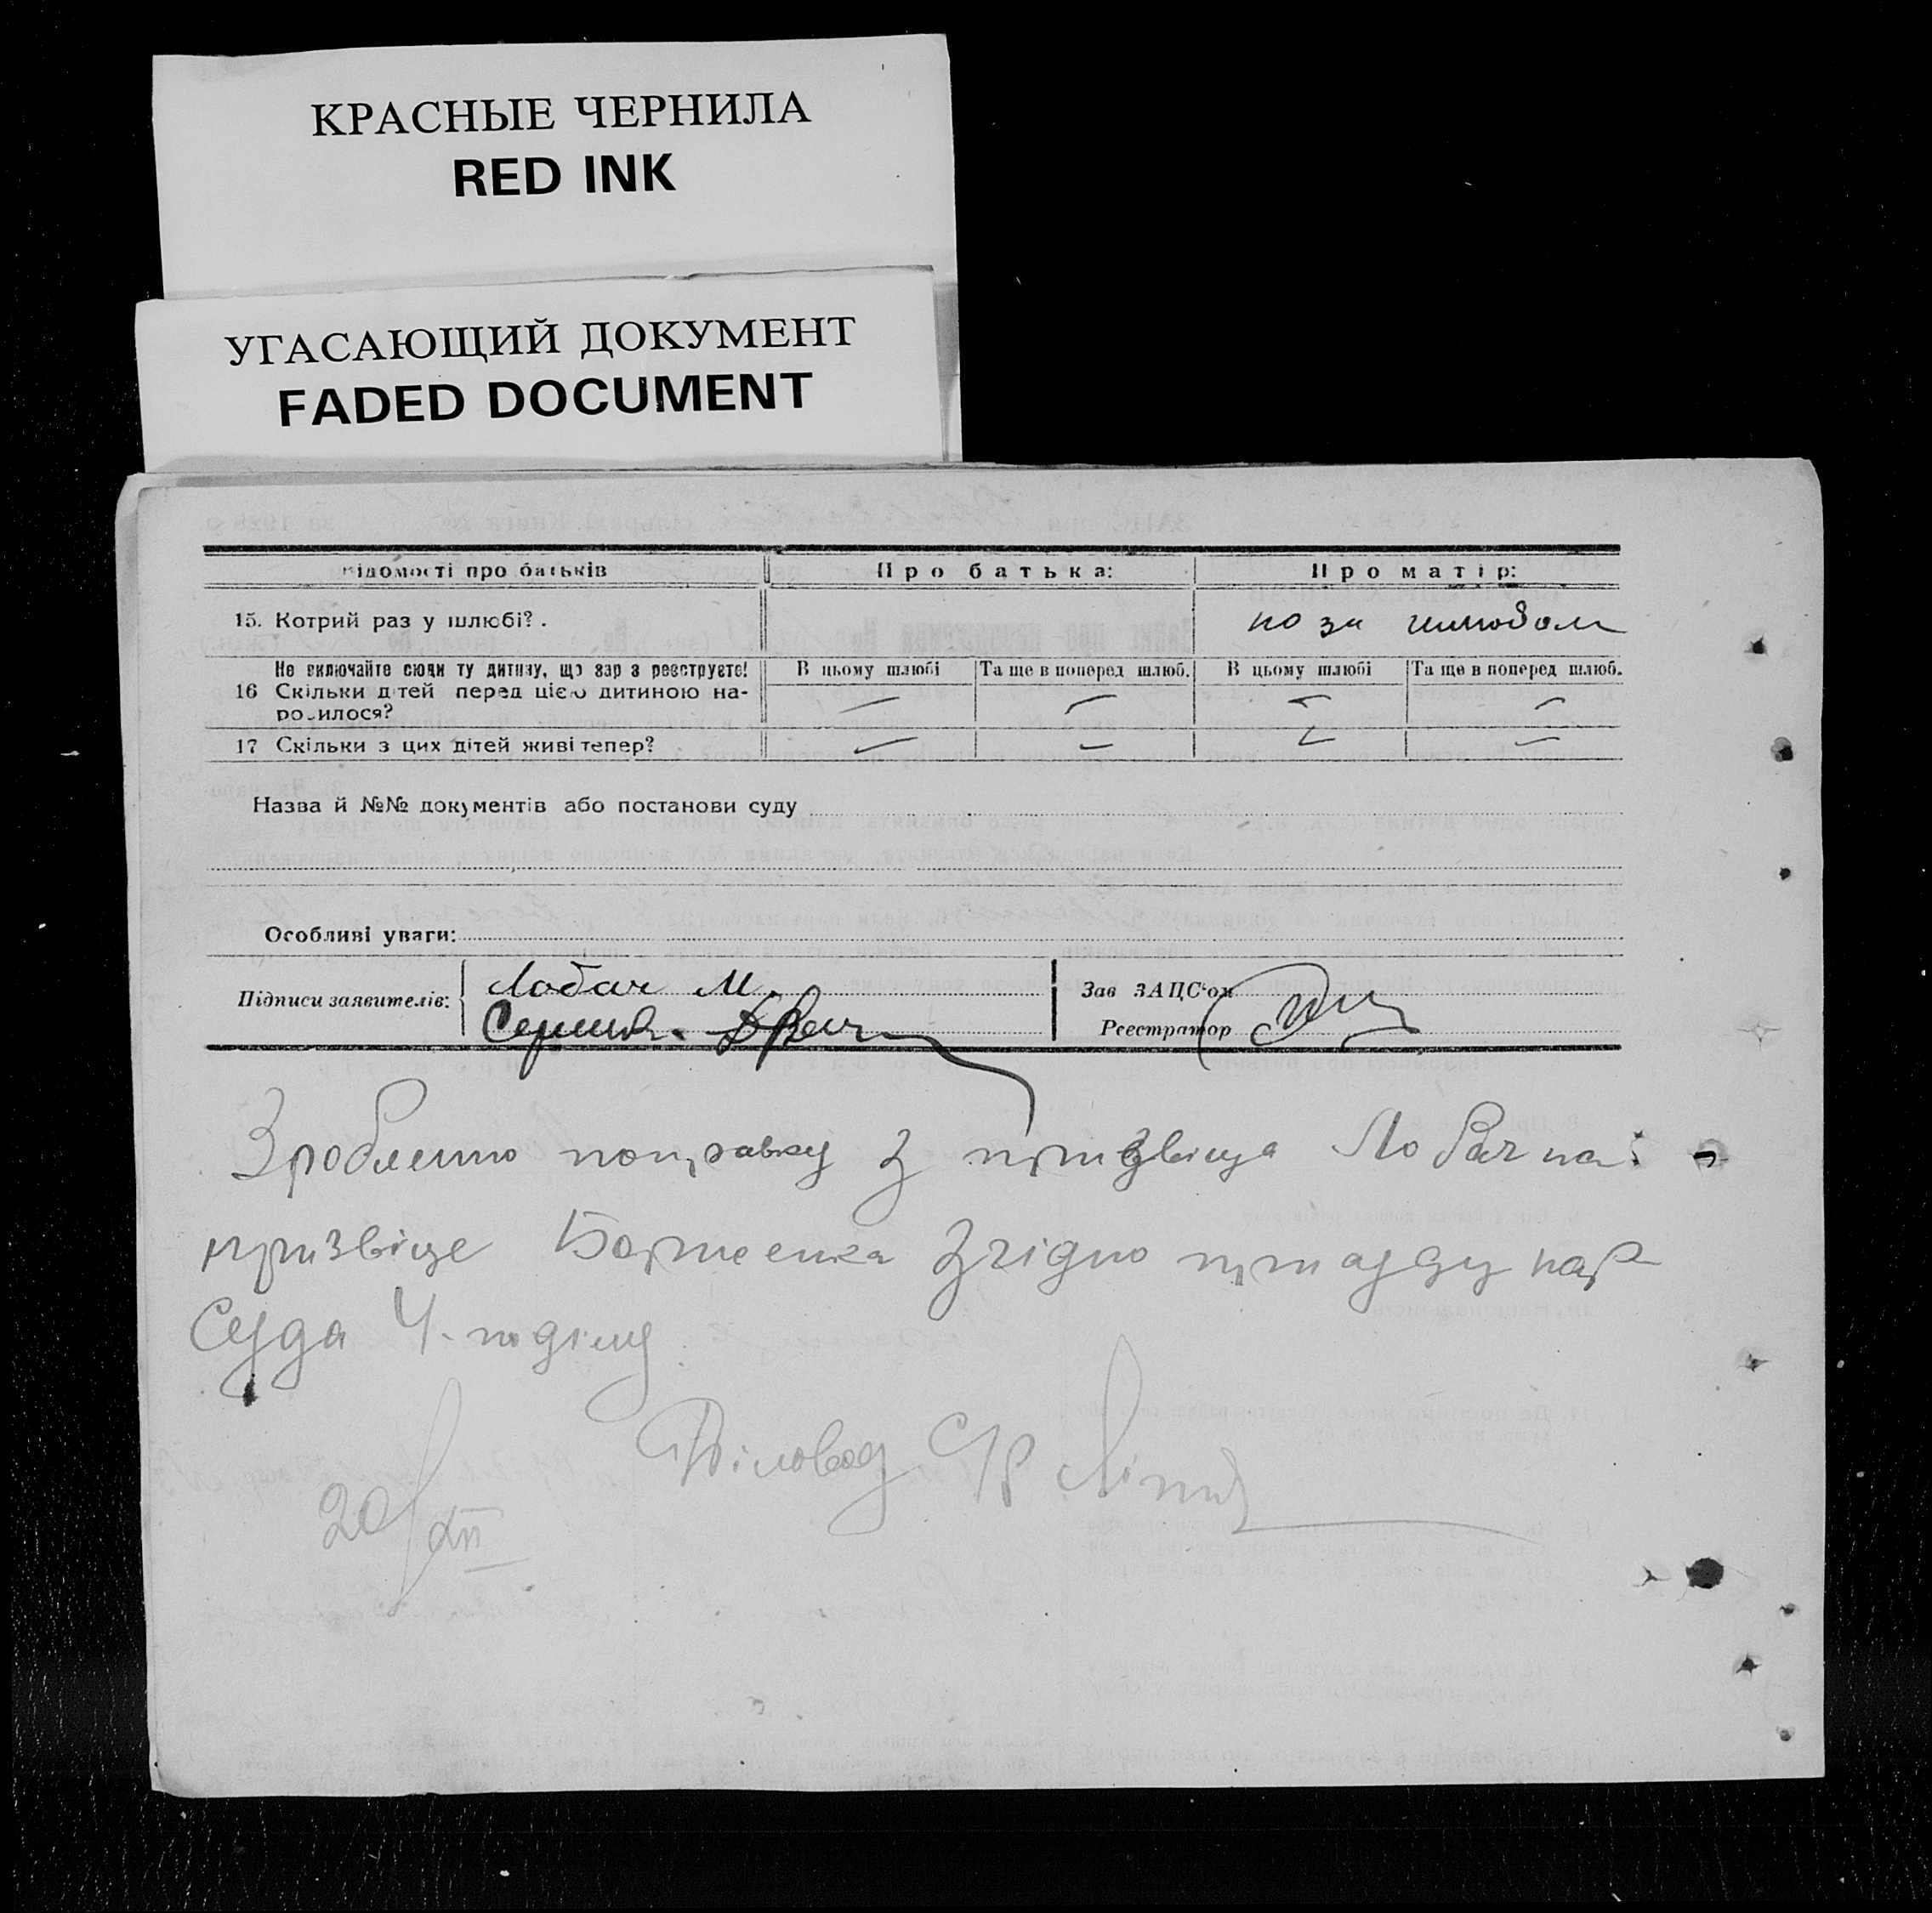 КРАСНЫЕ ЧЕРНИЛА
RED INK
УГАСАЮЩИЙ ДОКУМЕНТ
FADED DOCUMENT
відомості про батьків
Про батька:
Про матір:
15. Котрий раз у шлюбі?.
по за шлюбом
Не включайте сюди ту дитину, що зар з реєструєте!
В цьому шлюбі
Та ще в поперед шлюб.
В цьому шлюбі
Та ще в поперед шлюб.
16 Скільки дітей перед цією дитиною на-
родилося?
17 Скільки з цих дітей живі тепер?
Назва й №№ документів або постанови суду
Особливі уваги:
Підписи заявителів:
Лобач М.
Зав ЗАЦС'ом
Реєстратор
Зроблено поправку з призвіща Лобач на
призвіще згідно присуду нар
Суда 4. поділу
Діловод С/Р
20/XII